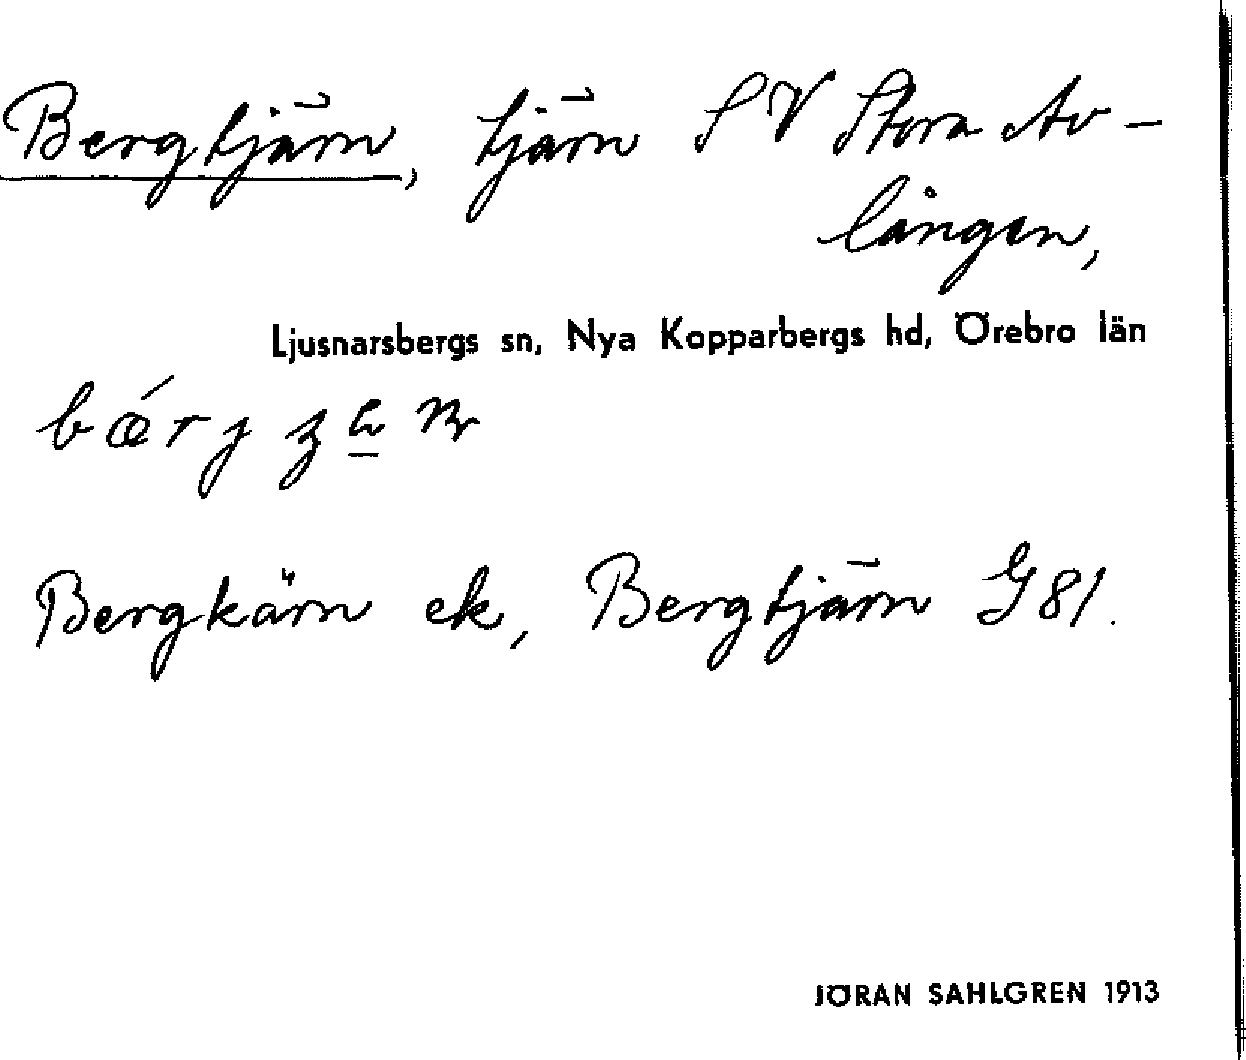 Bergtjärn, tjärn SV Stora Av-
lången,
Ljusnarsbergs sn, Nya Kopparbergs hd, Örebro län
Bergkärn ek, Bergtjärn G81.
JÖRAN SAHLGREN 1913